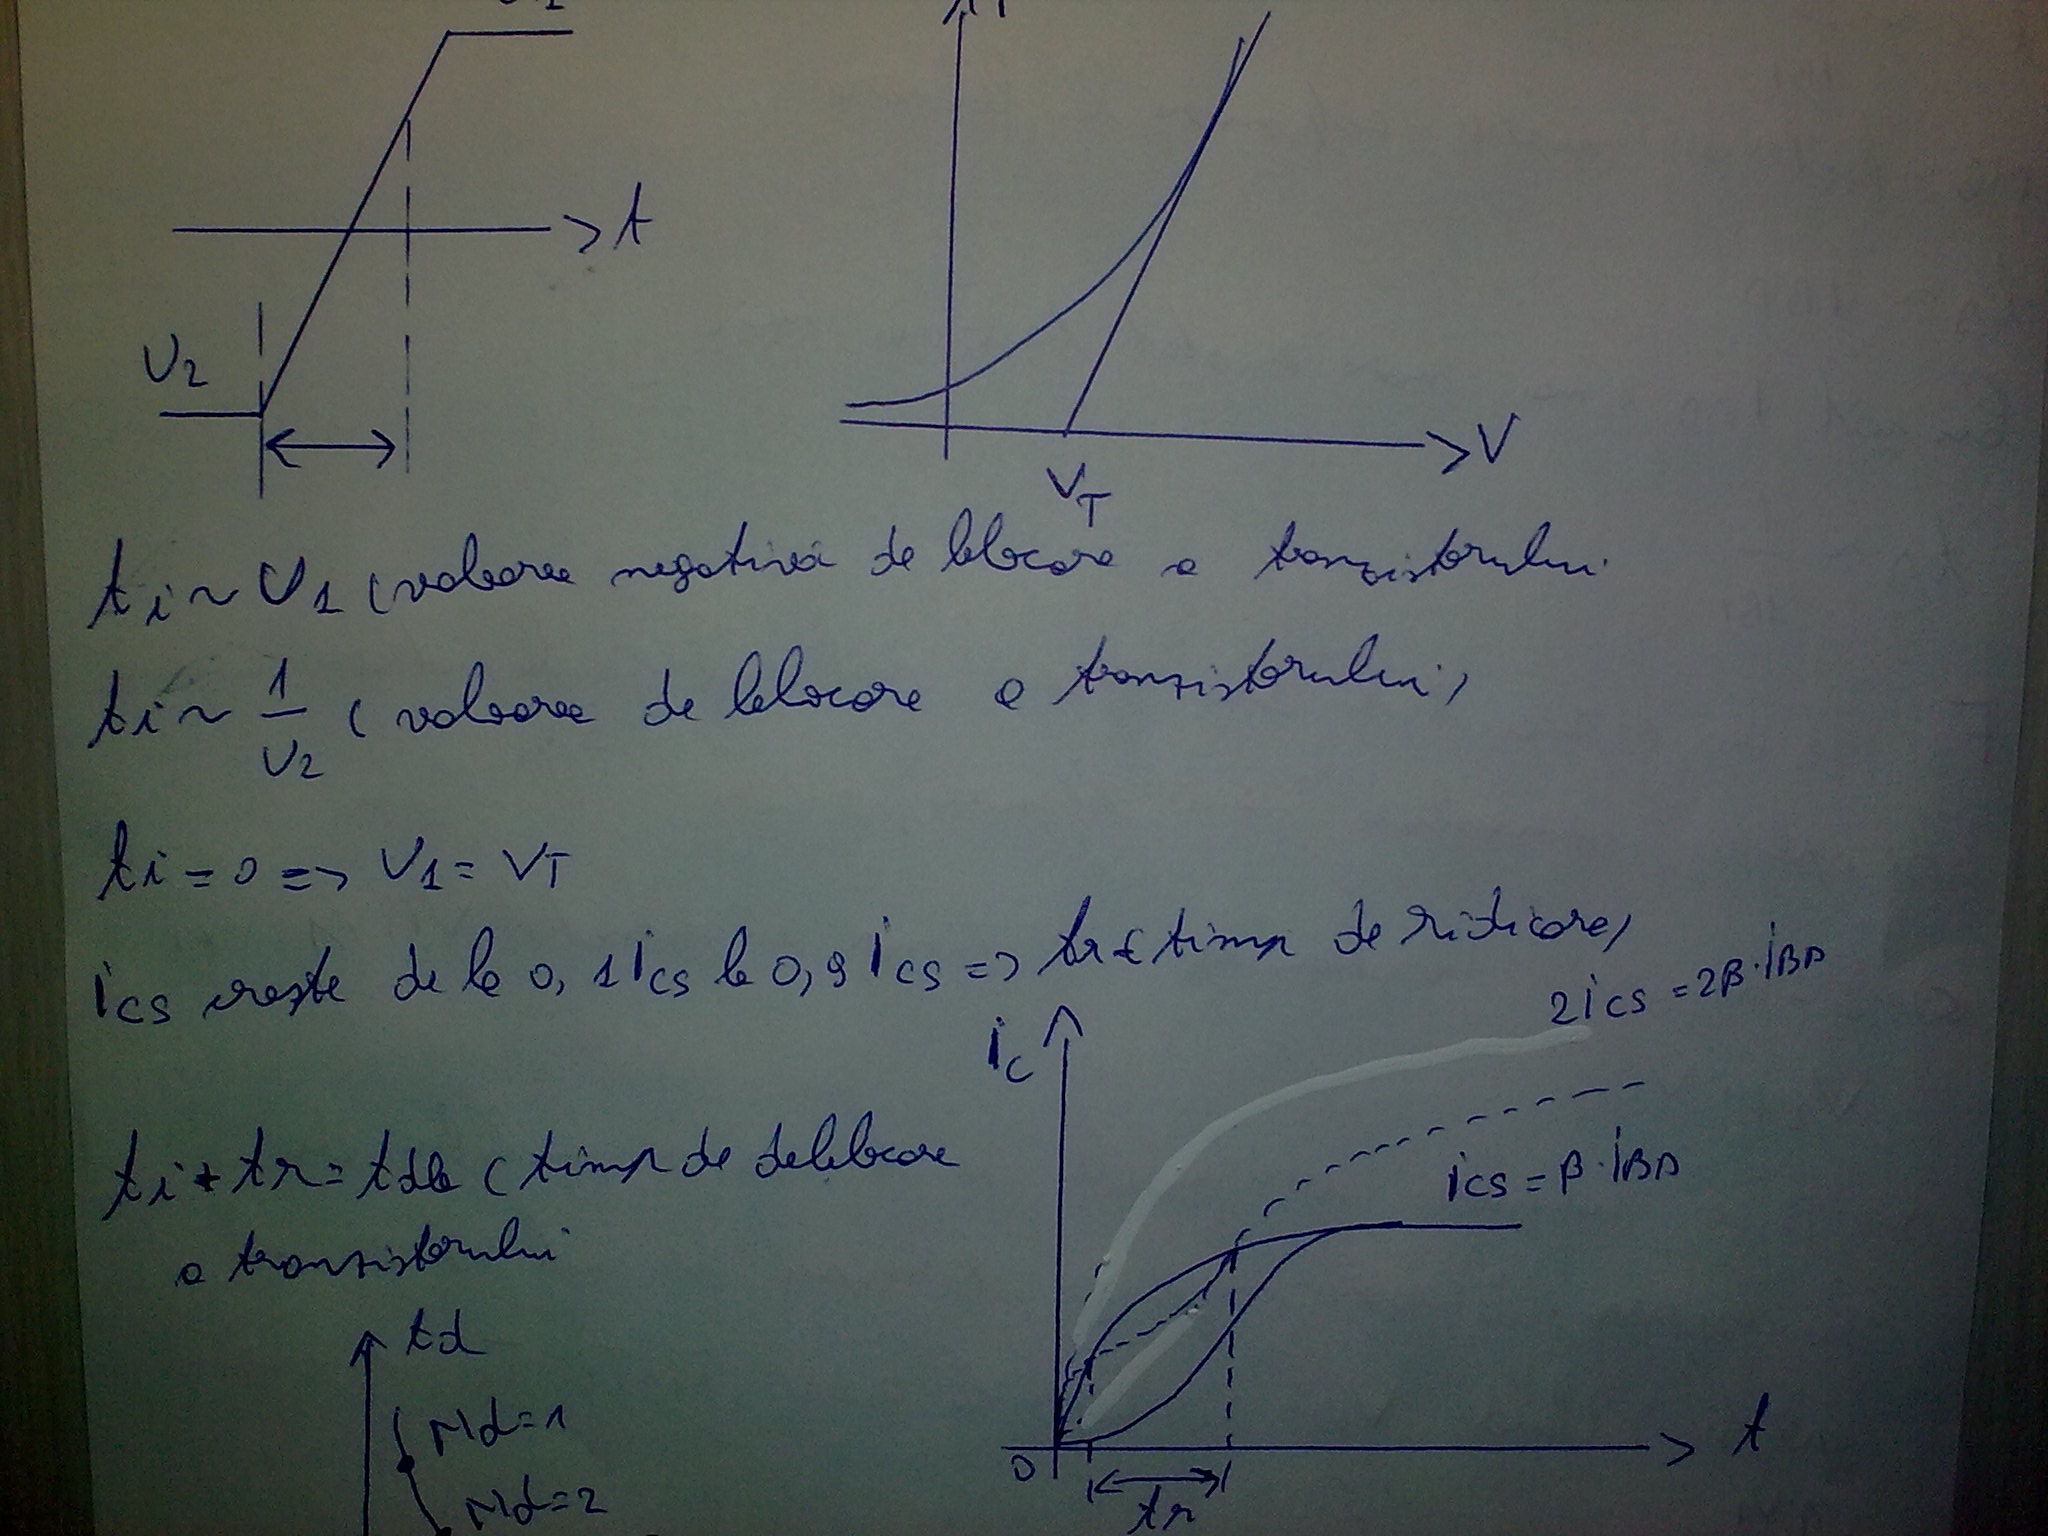 t
U2
V
VT
ti ~ U1 (valoarea negativă de blocare a tranzistorului
ti ~ 1/U2 (valoarea de blocare a tranzistorului)
ti = 0 => U1 = VT
iCS crește de la 0,1 iCS la 0,9 iCS => tr (timp de ridicare)
2iCS = 2β·iBD
iC
iCS = β·iBD
ti + tr = tdb (timp de deblocare
a tranzistorului
td
Nd=1
Nd=2
0
t
tr